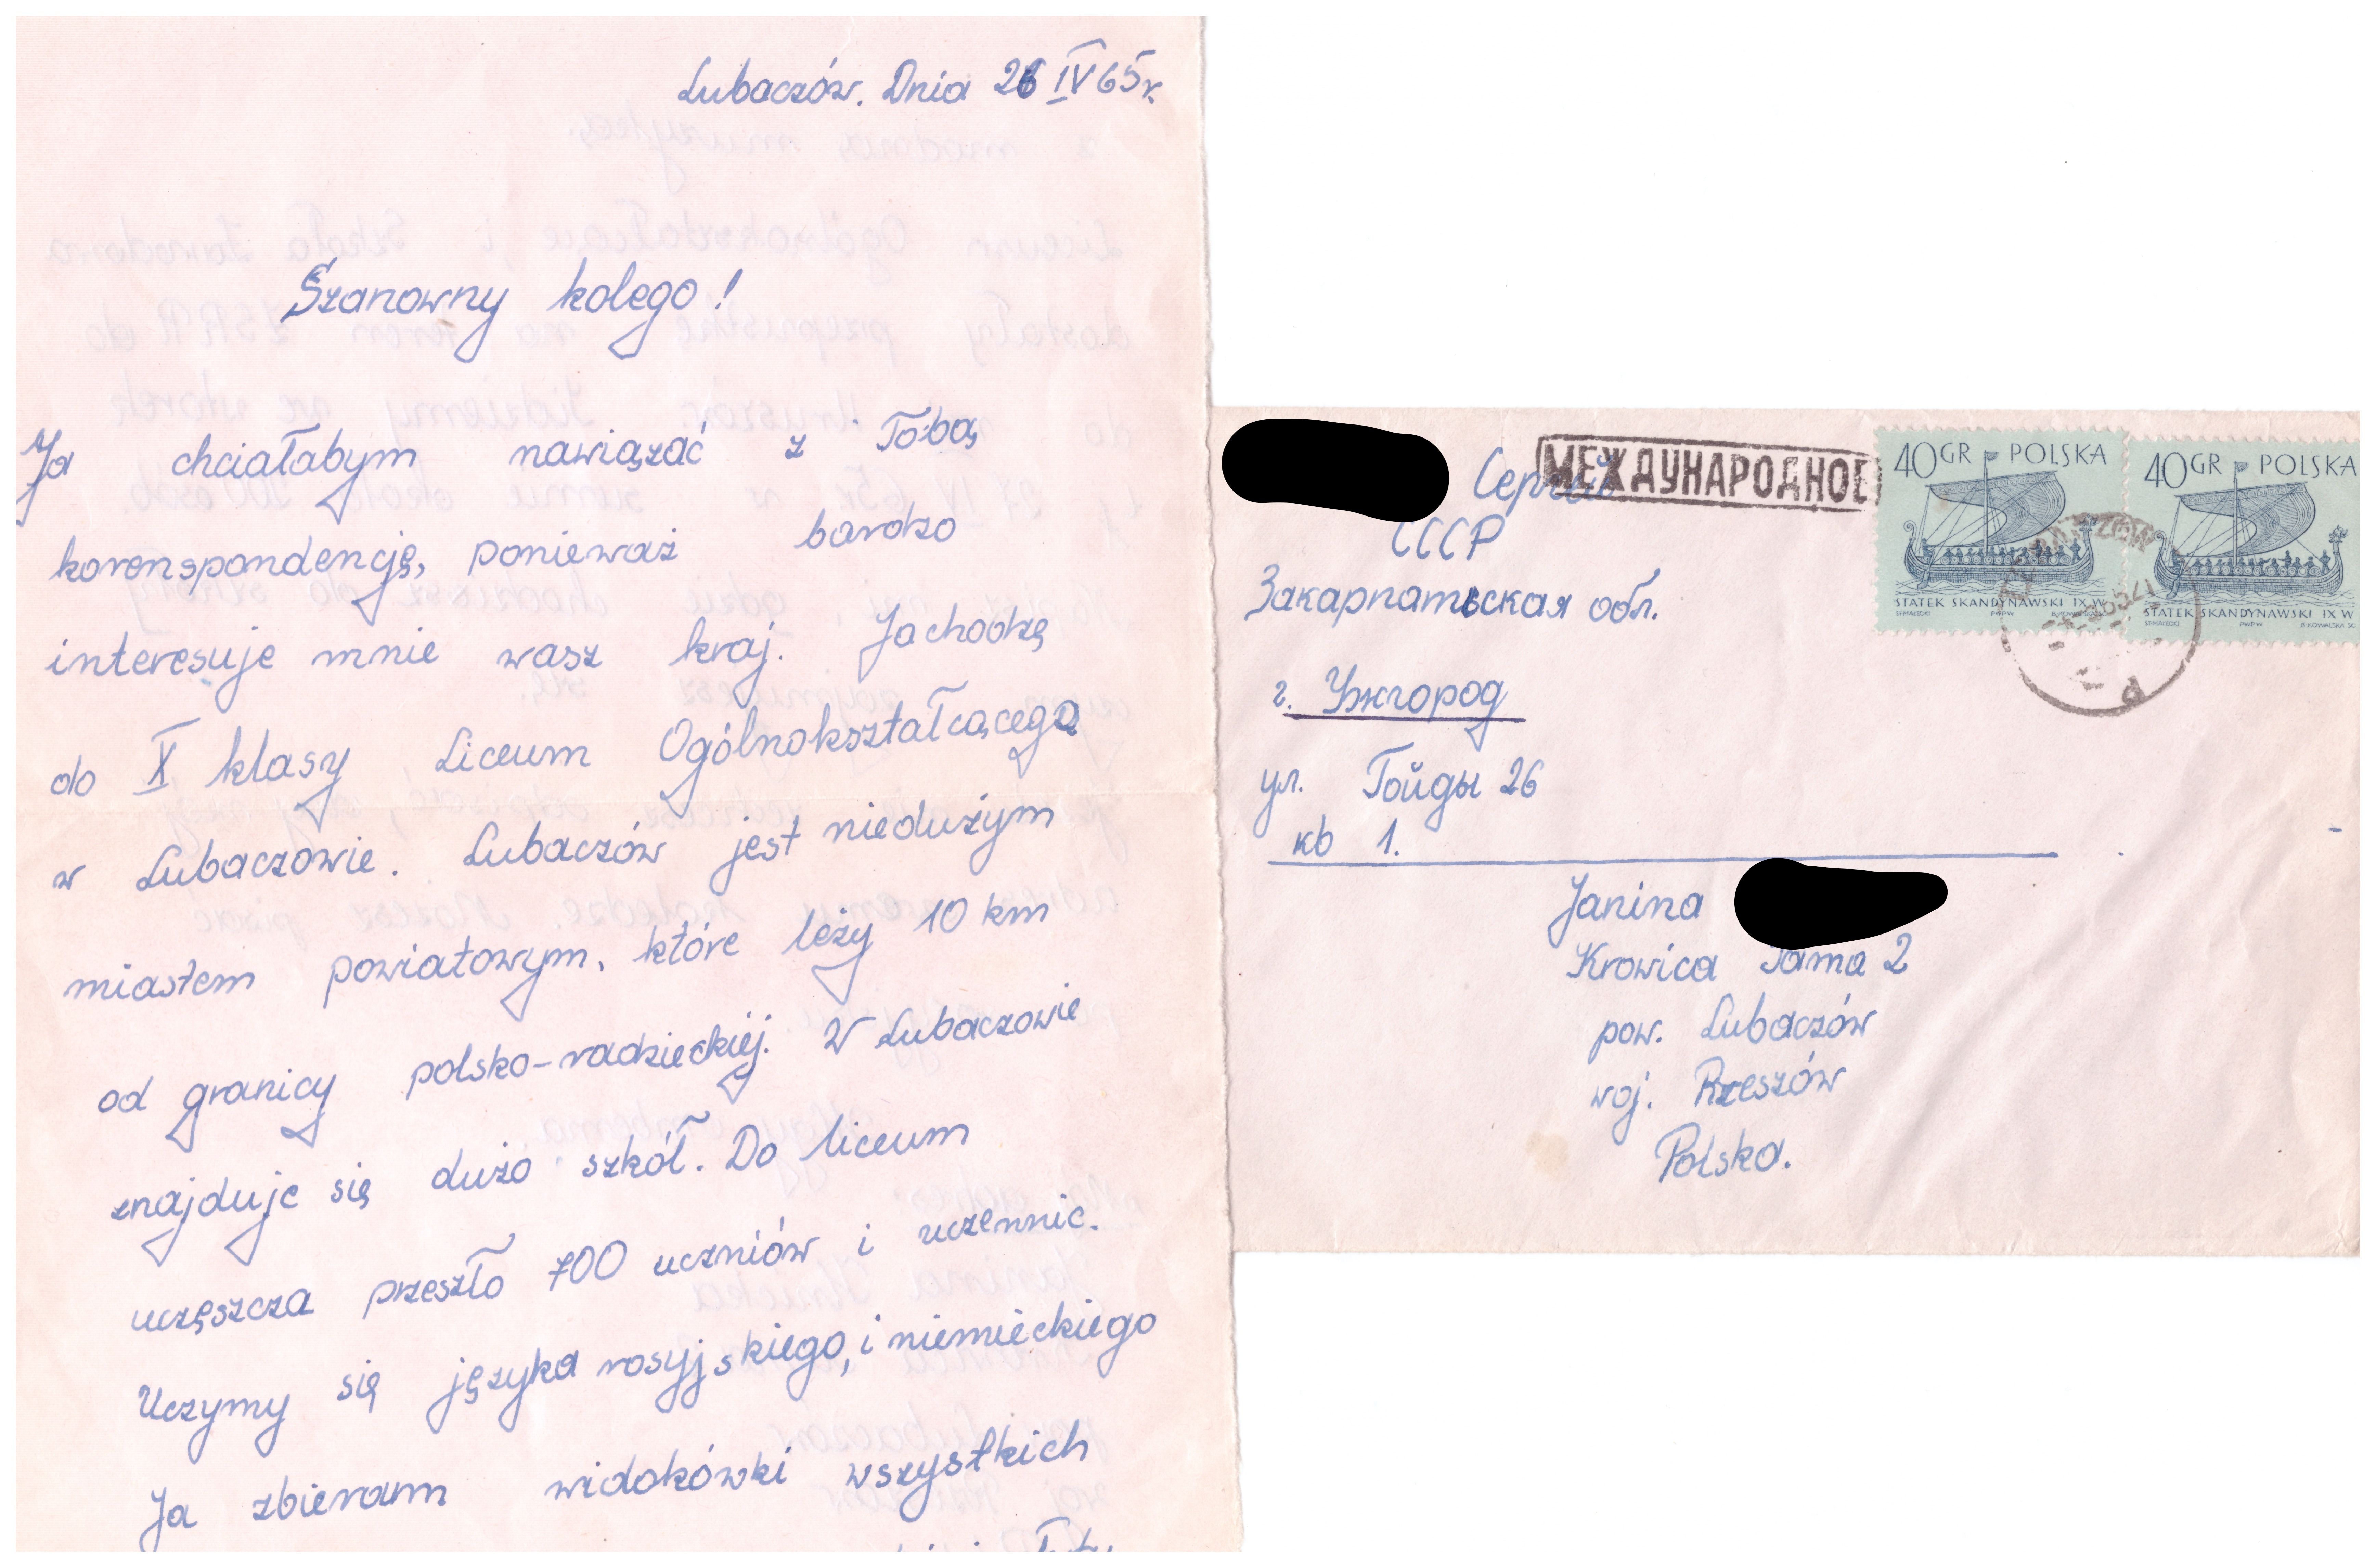 Lubaczów. Dnia 26 IV 65r.
Szanowny kolego!
Ja chciałabym nawiązać z Tobą
korenspondencję, ponieważ bardzo
interesuje mnie wasz kraj. Ja chodzę
do X klasy Liceum Ogólnokształcącego
w Lubaczowie. Lubaczów jest niedużym
miastem powiatowym, które leży 10 km
od granicy polsko-radzieckiej. W Lubaczowie
znajduje się dużo szkół. Do liceum
uczęszcza przeszło 700 uczniów i uczennic.
Uczymy się języka rosyjskiego, i niemieckiego
Ja zbieram widokówki wszystkich
Сергей
МЕЖДУНАРОДНОЕ
СССР
Закарпатьская обл.
г. Ужгород
ул. Гойды 26
кв 1.
Janina
Krowica Sama 2
pow. Lubaczów
woj. Rzeszów
Polska.
40 GR POLSKA
STATEK SKANDYNAWSKI IX W
40 GR POLSKA
STATEK SKANDYNAWSKI IX W